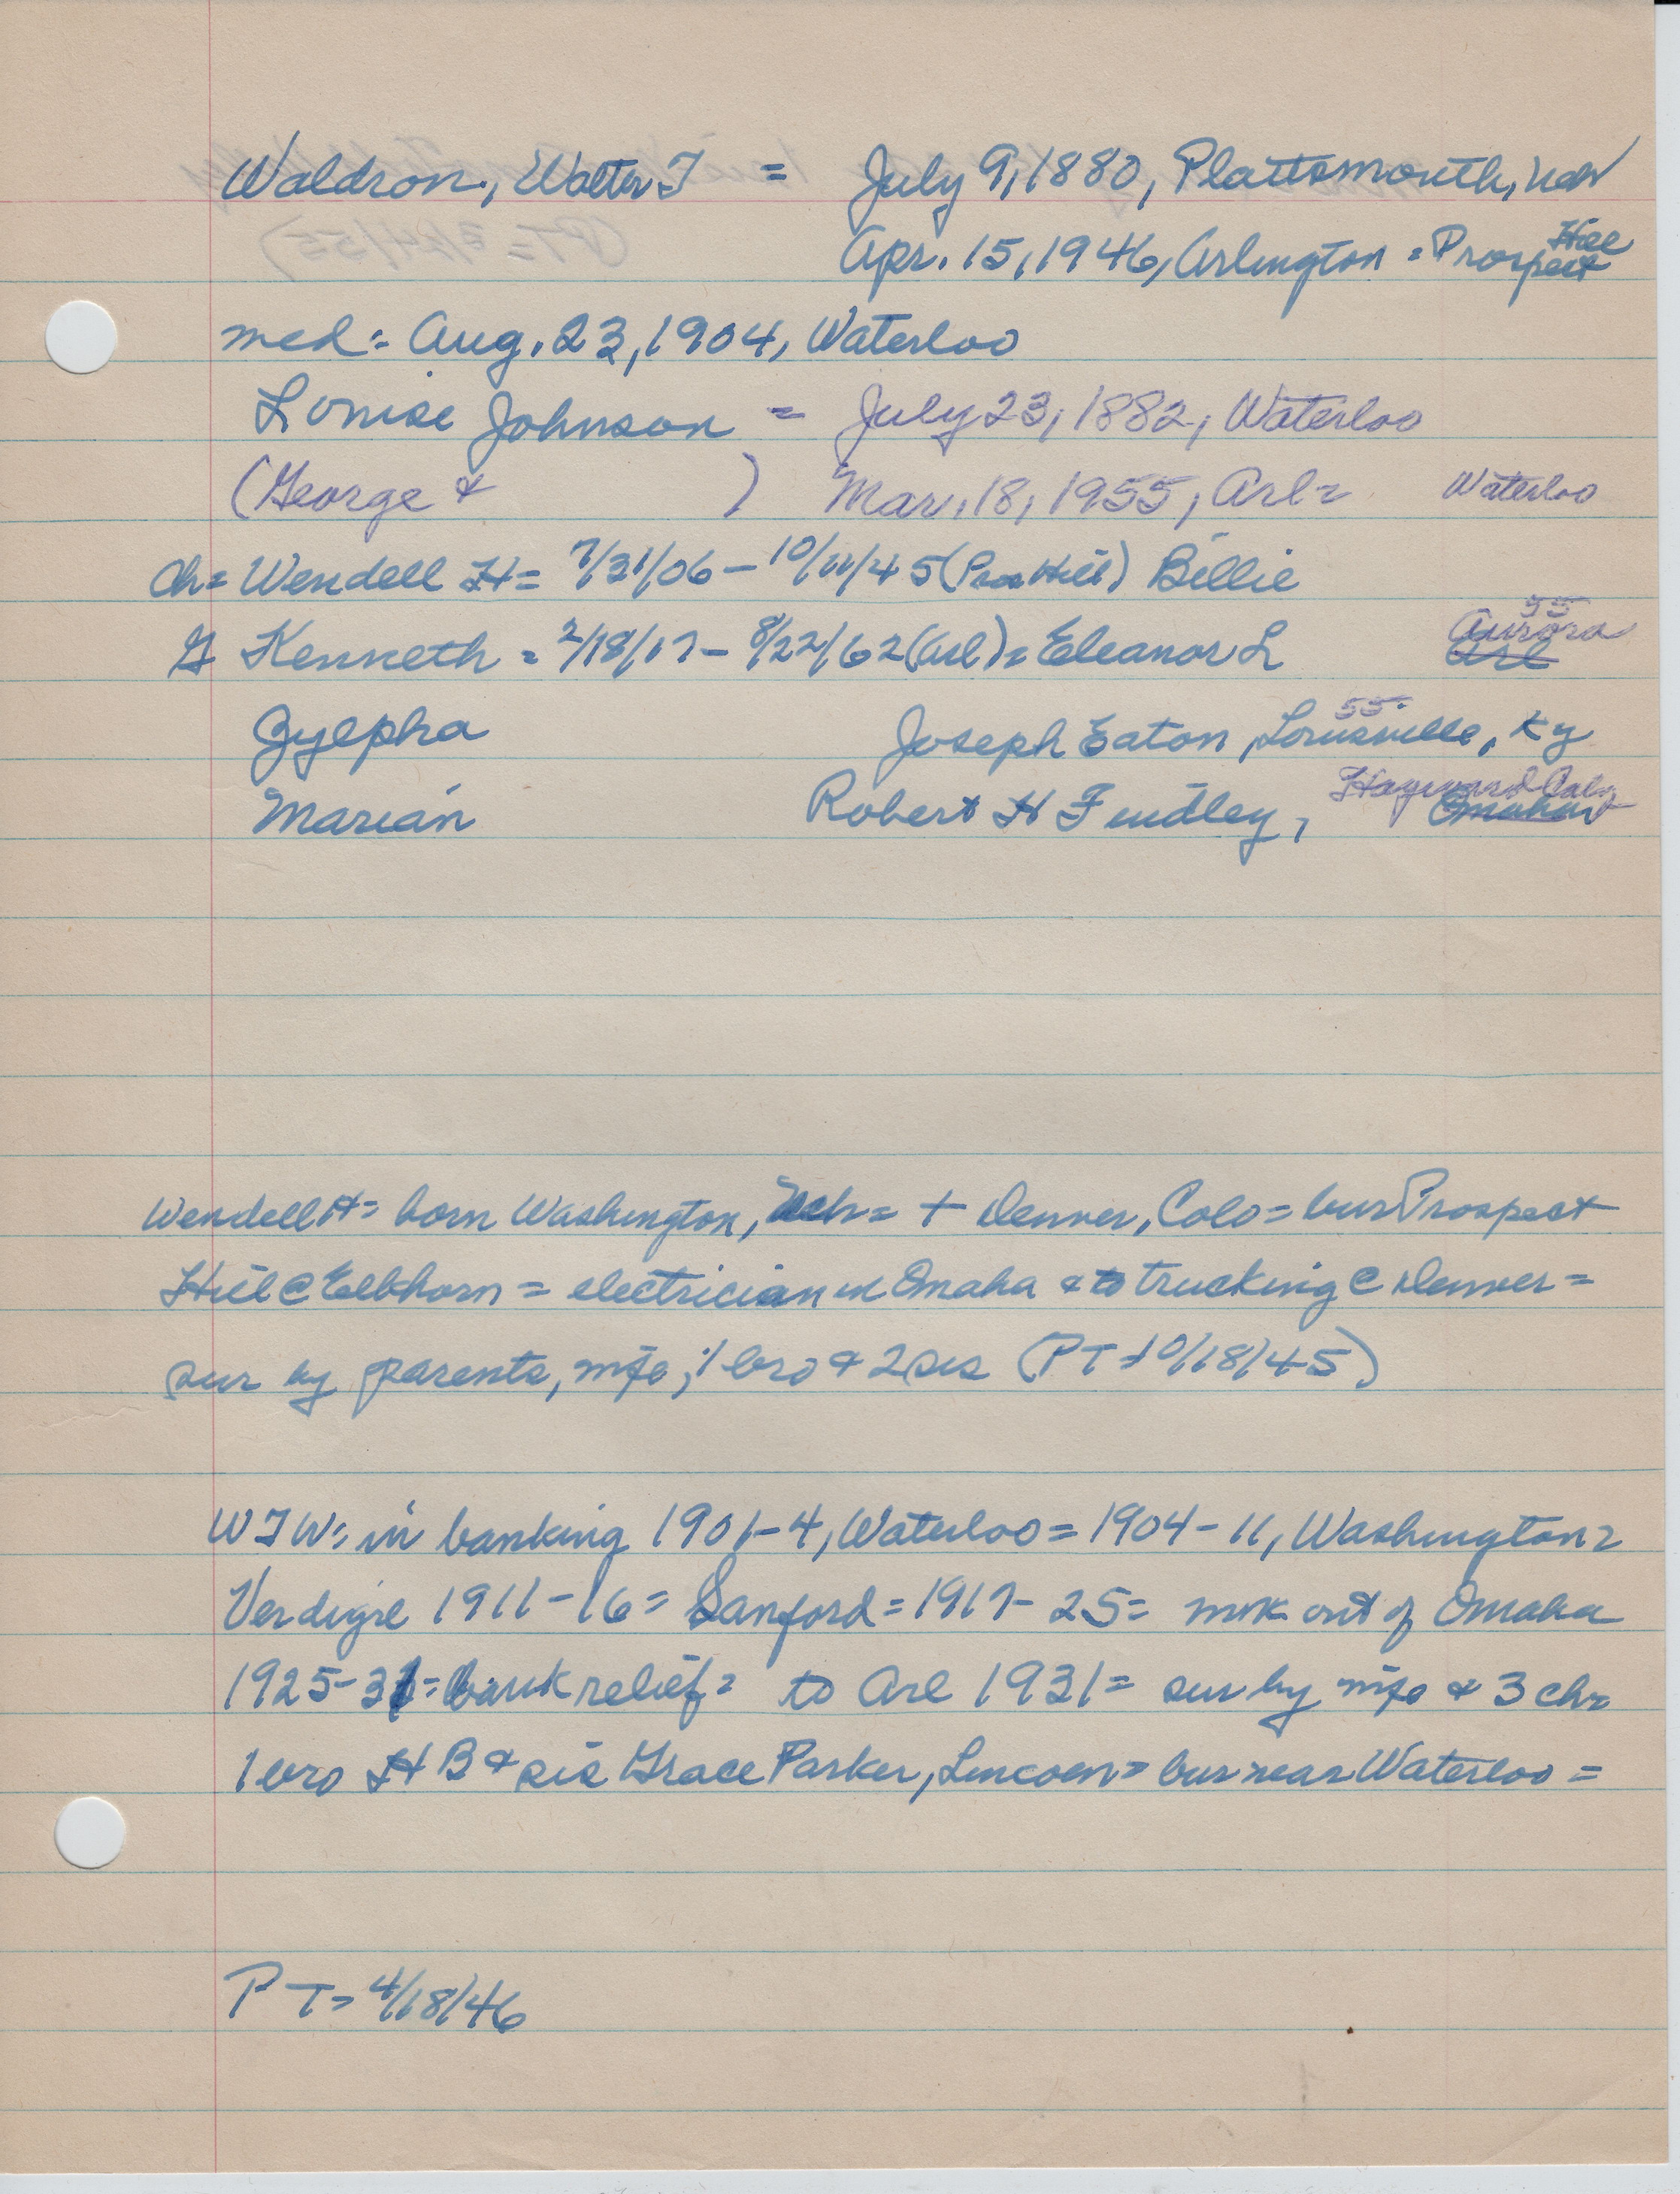 Waldron, Walter T = July 9, 1880, Plattsmouth, Neb
Apr. 15, 1946, Arlington = Prospect Hill
med = Aug. 23, 1904, Waterloo
Louise Johnson = July 23, 1882, Waterloo
(George & ) Mar. 18, 1955, Arl = Waterloo
Ch = Wendell H = 7/31/06 - 10/11/45 (Pros Hill) Billie
G Kenneth = 2/18/17 - 8/22/62 (Arl) = Eleanor L Arl Aurora 55
Zylpha Joseph Eaton, Louisville, Ky 55
Marian Robert H Findley, Omaha Hayward Calif
Wendell H = born Washington, Neb = + Denver, Colo = bur Prospect
Hill @ Elkhorn = electrician in Omaha & to trucking @ Denver =
sur by parents, wife, 1 bro & 2 sis (PT = 10/18/45)
WTW: in banking 1901-4, Waterloo = 1904-11, Washington =
Verdigre 1911-16 = Sanford = 1917-25 = out of Omaha
1925-31 = bank relief = to Arl 1931 = sur by wife & 3 ch =
1 bro H B & sis Grace Parker, Lincoln = bur near Waterloo =
PT = 4/18/46